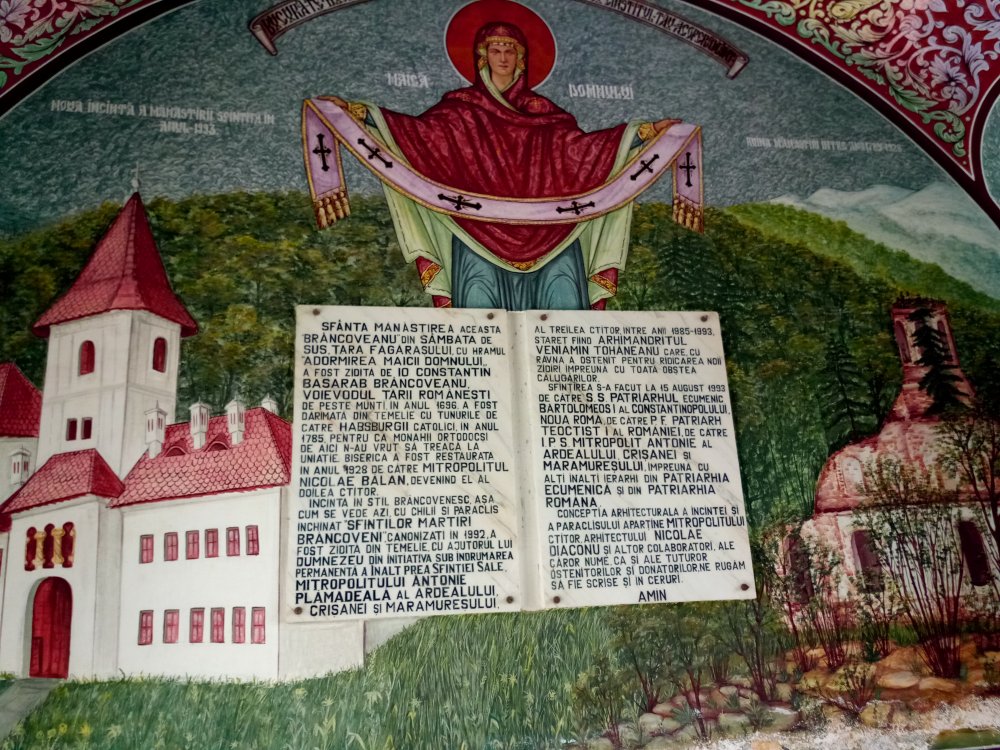 MAICA DOMNULUI
NOUA INCINTĂ A MĂNĂSTIRII SFINTITĂ IN
ANUL-1993.
SFÂNTA MANASTIREA ACEASTA
"BRÂNCOVEANU" DIN SÂMBATA DE
SUS, TARA FAGARASULUI, CU HRAMUL
"ADORMIREA MAICII DOMNULUI,
A FOST ZIDITA DE IO CONSTANTIN
BASARAB BRÂNCOVEANU,
VOIEVODUL TARII ROMÂNESTI
DE PESTE MUNTI, IN ANUL 1696. A FOST
DARIMATA DIN TEMELIE CU TUNURILE DE
CATRE HABSBURGII CATOLICI, IN ANUL
1785, PENTRU CA MONAHII ORTODOCSI
DE AICI N-AU VRUT SĂ TREACA LA
UNIATIE. BISERICA A FOST RESTAURATA
IN ANUL 1928 DE CATRE MITROPOLITUL
NICOLAE BALAN, DEVENIND EL AL
DOILEA CTITOR.
INCINTA IN STIL BRÂNCOVENESC, ASA
CUM SE VEDE AZI, CU CHILII SI PARACLIS
INCHINAT "SFINTILOR MARTIRI
BRANCOVENI", CANONIZATI IN 1992, A
FOST ZIDITA DIN TEMELIE, CU AJUTORUL LUI
DUMNEZEU DIN INITIATIVA SUB INDRUMAREA
PERMANENTA A INALT PREA SFINTIEI SALE,
MITROPOLITULUI ANTONIE
PLAMADEALA AL ARDEALULUI,
CRISANEI ȘI MARAMURESULUI,
AL TREILEA CTITOR, INTRE ANII 1985-1993,
STARET FIIND ARHIMANDRITUL
VENIAMIN TOHANEANU CARE, CU
RÂVNA A OSTENIT PENTRU RIDICAREA NOII
ZIDIRI IMPREUNA CU TOATĂ OBSTEA
CALUGARILOR.
SFINTIREA S-A FACUT LA 15 AUGUST 1993
DE CATRE S.S. PATRIARHUL ECUMENIC
BARTOLOMEOS I AL CONSTANTINOPOLULUI,
NOUA ROMA, DE CATRE P.F. PATRIARH
TEOCTIST I AL ROMÂNIEI, DE CATRE
I.P.S. MITROPOLIT ANTONIE AL
ARDEALULUI, CRIȘANEI ȘI
MARAMURESULUI, IMPREUNA CU
ALTI INALTI IERARHI DIN PATRIARHIA
ECUMENICĂ ȘI DIN PATRIARHIA
ROMANA.
CONCEPTIA ARHITECTURALA A INCINTEI ȘI
A PARACLISULUI APARTINE MITROPOLITULUI
CTITOR, ARHITECTULUI NICOLAE
DIACONU ȘI ALTOR COLABORATORI, ALE
CAROR NUME, CA ȘI ALE TUTUROR
OSTENITORILOR ȘI DONATORILOR, NE RUGAM
SĂ FIE SCRISE ȘI IN CERURI.
AMIN